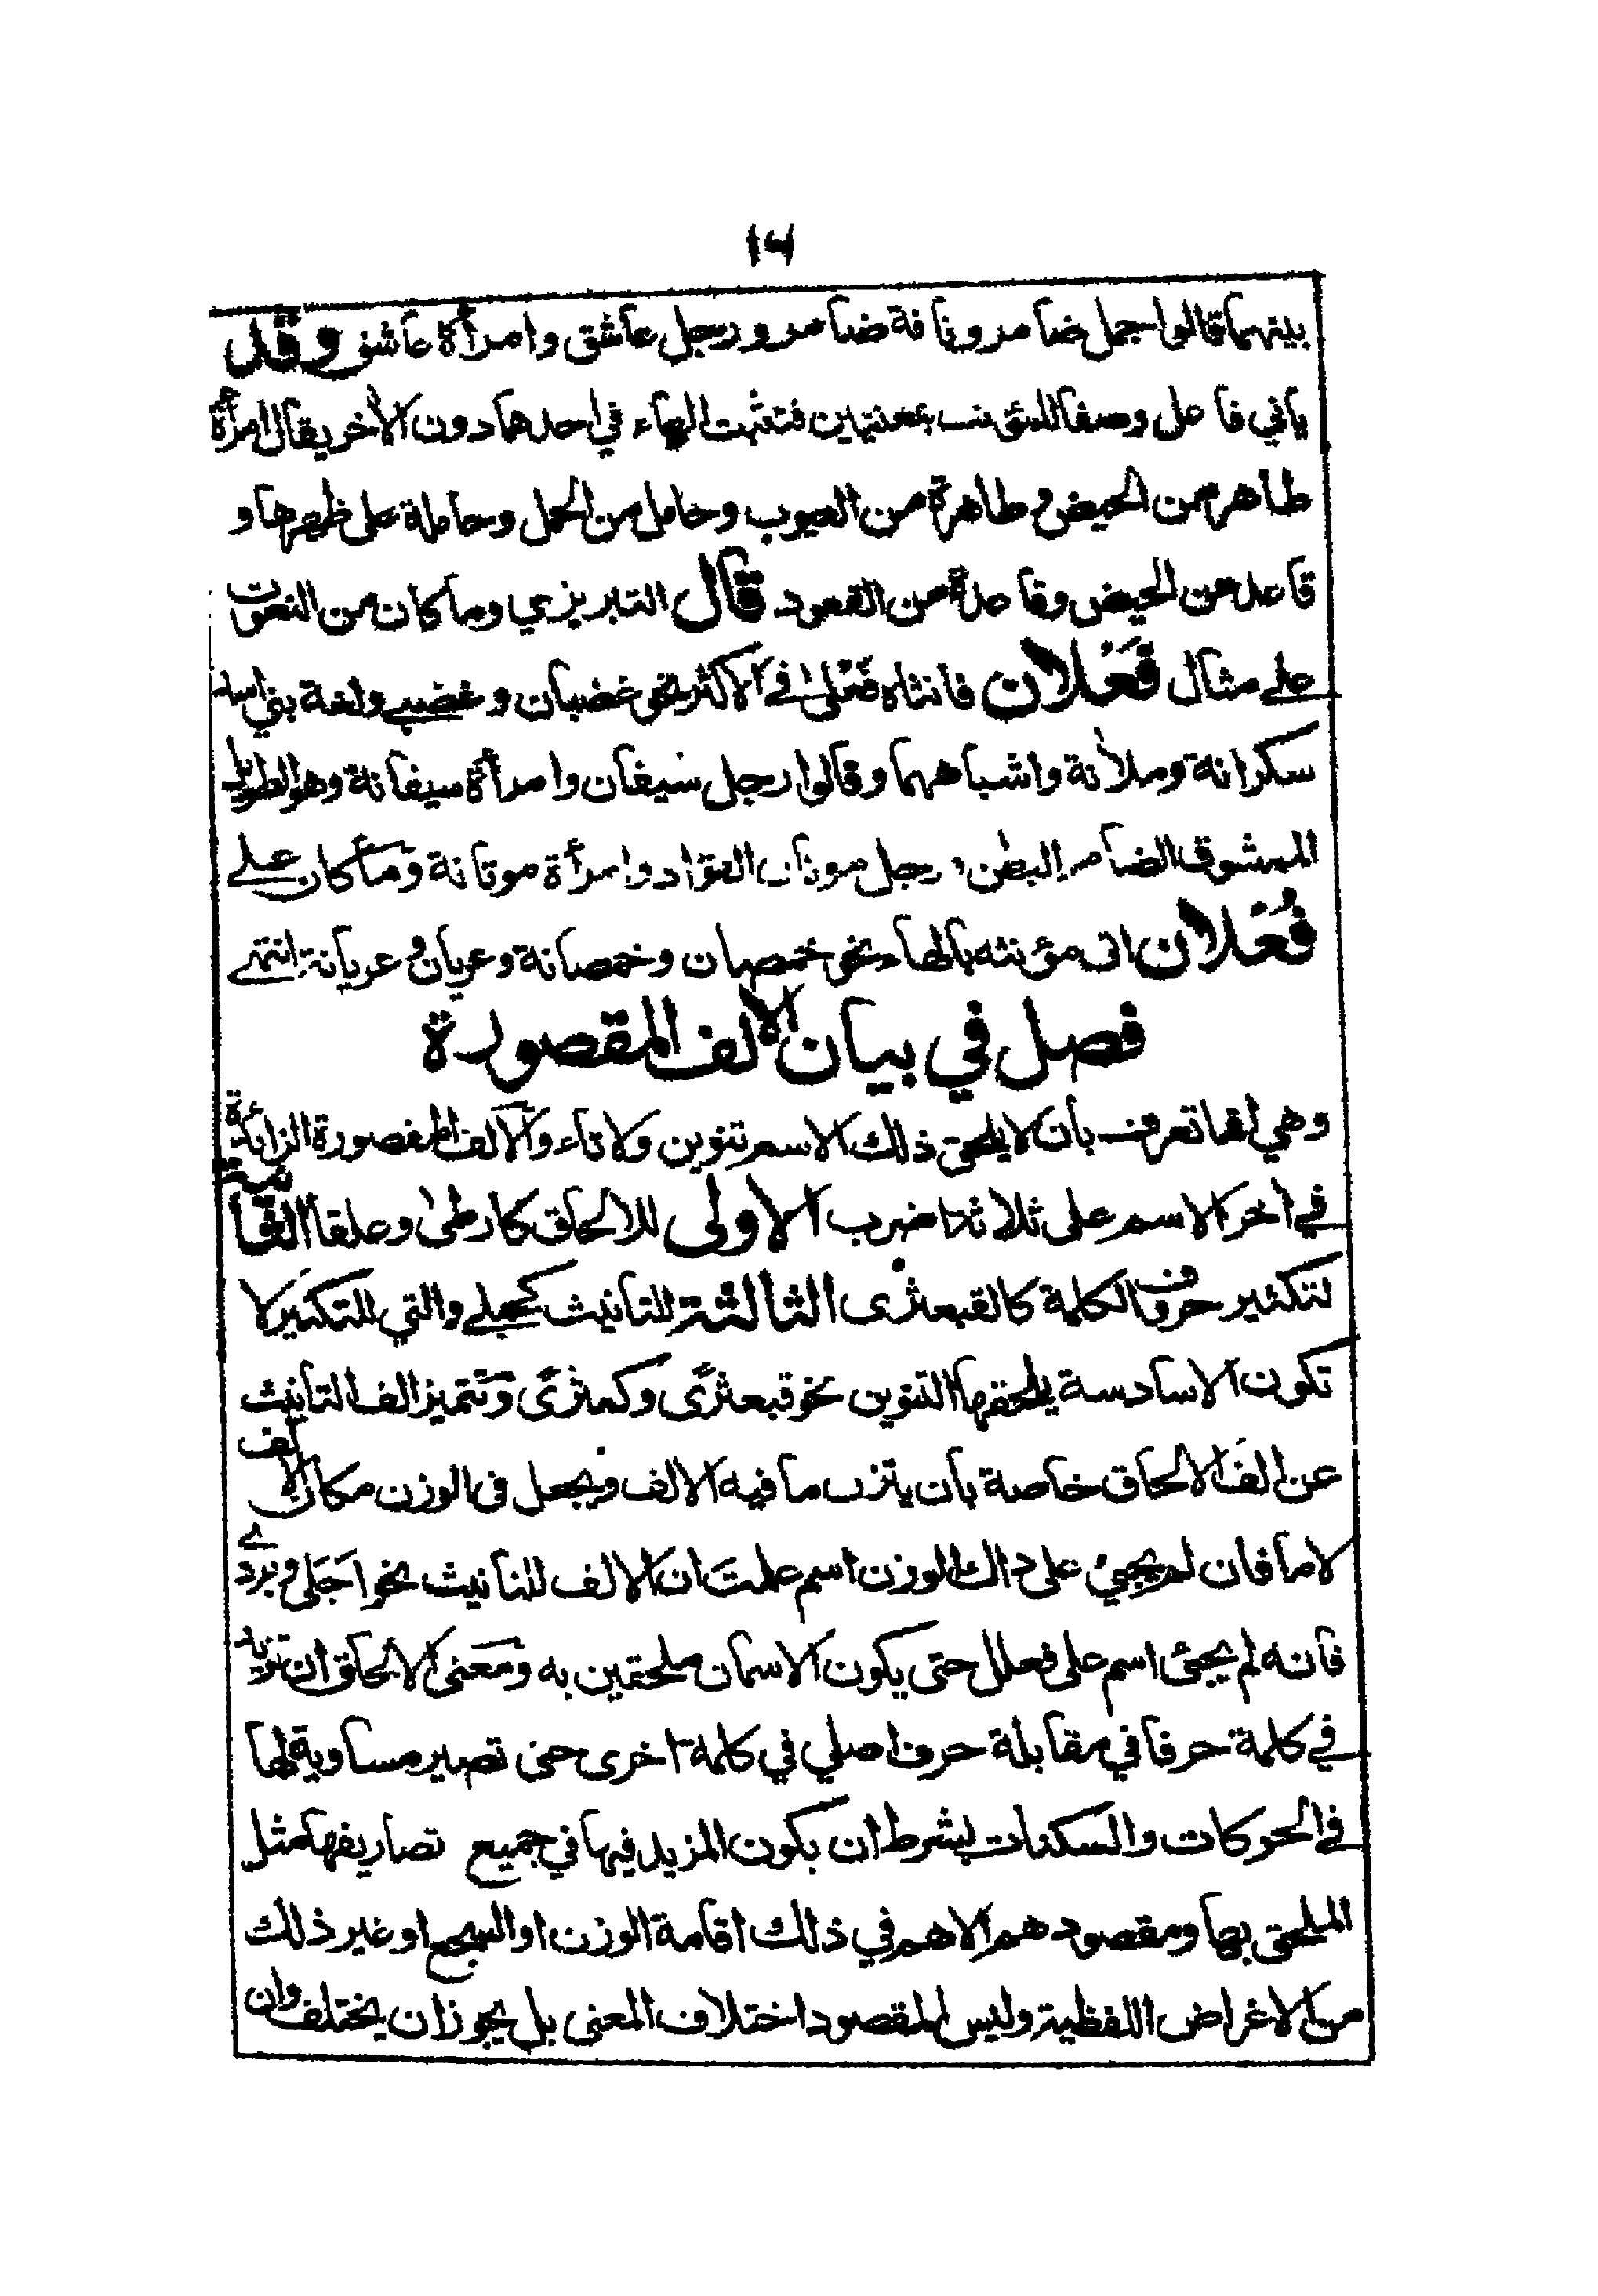 ١٦
بينهما قالوا جمل ضامر وناقة ضامر ورجل عاشق وامرأة عاشق وقد
ياتي فاعل وصفا للمؤنث بمعنيين فتثبت الهاء في احدهما دون الآخر يقال امرأة
طاهر من الحيض وطاهرة من العيوب وحامل من الحمل وحاملة على ظهرها و
قاعد من الحيض وقاعدة من القعود قال التبريزي وما كان من النعوت
على مثال فَعْلان فانثاه فَعْلى في الاكثر نحو غضبان وغضبى ولغة بني اسد
سكرانة وملأنة واشباههما وقالوا رجل سيفان وامرأة سيفانة وهو الطويل
الممشوق الضامر البطن ورجل موتان الفؤاد وامرأة موتانة وما كان على
فُعْلان اتى مؤنثه بالهاء نحو خمصان وخمصانة وعريان وعريانة انتهى
فصل في بيان الالف المقصورة
وهي انما تعرف بأن لا يلحق ذلك الاسم تنوين ولا تاء والالف المقصورة الزائدة
في آخر الاسم على ثلاثة اضرب الاولى للالحاق كارطى وعلقا الثانية
لتكثير حروف الكلمة كالقبعثرى الثالثة للتانيث كحبلى والتي للتكثير لا
تكون الا سادسة يلحقها التنوين نحو قبعثرًى وكمثرًى وتتميز الف التانيث
عن الف الالحاق خاصة بأن يتزن ما فيه الالف ويجعل في الوزن مكان الالف
لاما فان لم يجئ على ذلك الوزن اسم علمت ان الالف للتانيث نحو اَجَلى وبردى
فانه لم يجئ اسم على فعلل حتى يكون الاسمان ملحقين به ومعنى الالحاق ان تزيد
في كلمة حرفا في مقابلة حرف اصلي في كلمة اخرى حتى تصير مساوية لها
في الحركات والسكنات بشرط ان يكون المزيد فيها في جميع تصاريفها كمثل
الملحق بها ومقصودهم الاهم في ذلك اقامة الوزن او السجع او غير ذلك
من الاغراض اللفظية وليس المقصود اختلاف المعنى بل يجوز ان يختلف وان